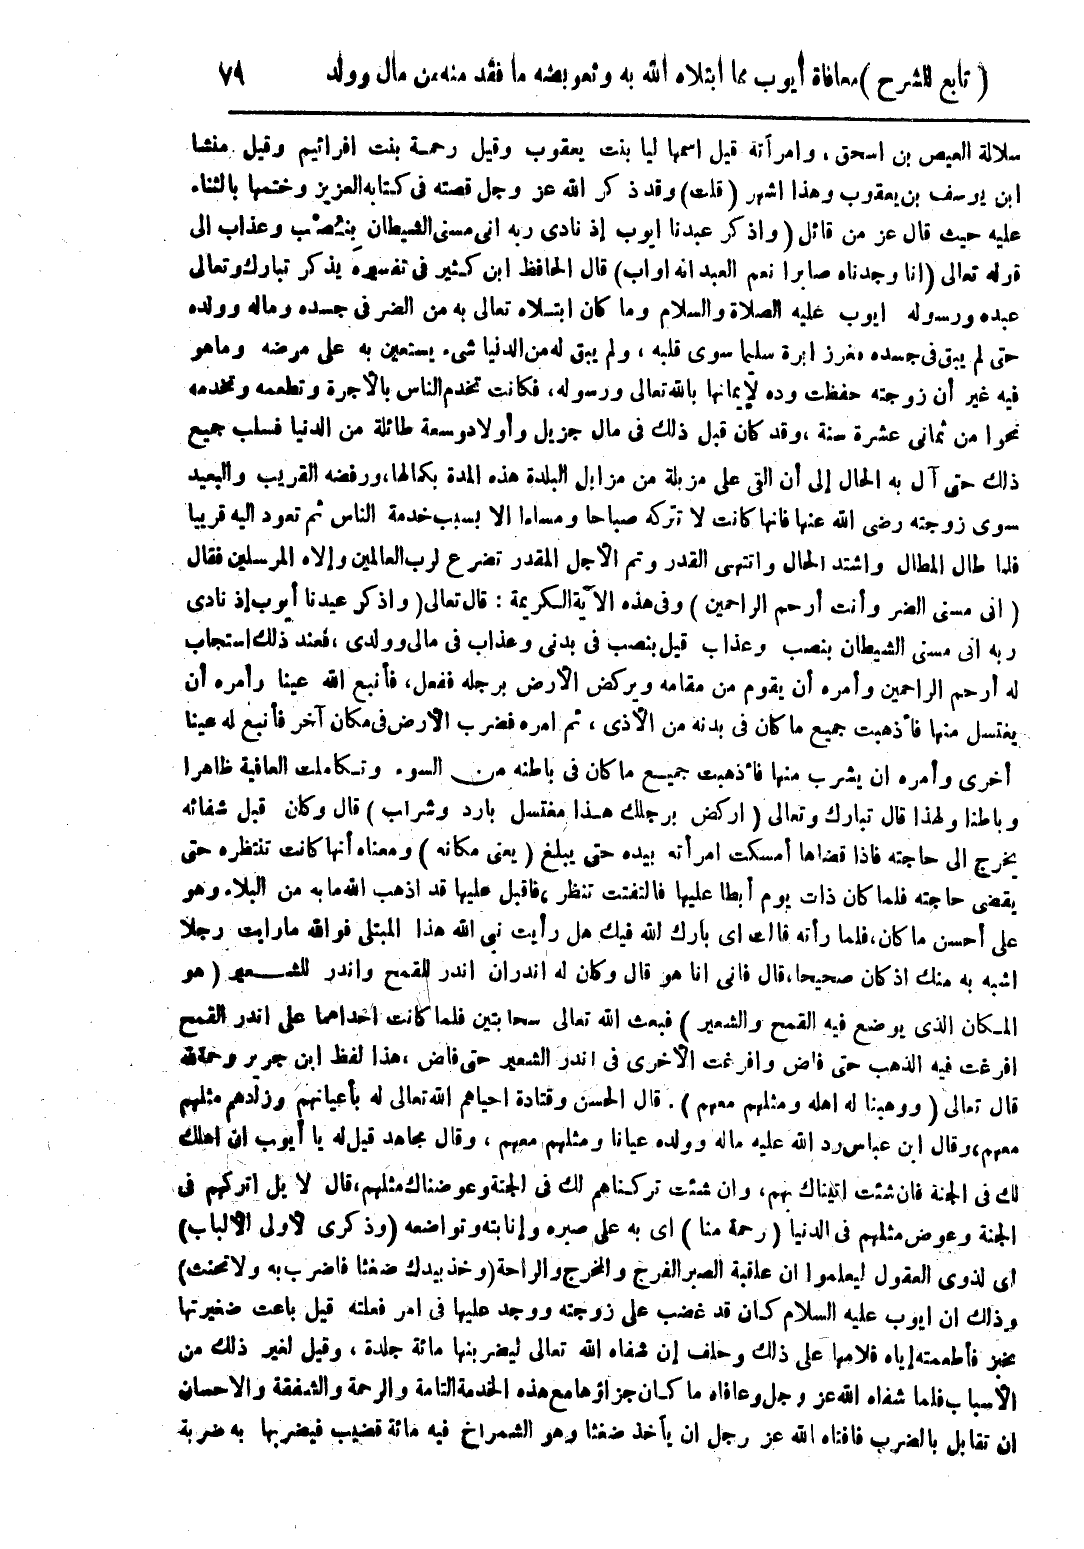 ( تابع للشرح ) معافاة أيوب مما ابتلاه الله به وتعويضه ما فقد منه من مال وولد ٧٩
سلالة العيص بن اسحق ، وامرأته قيل اسمها ليا بنت يعقوب وقيل رحمة بنت افرائيم وقيل منشا
ابن يوسف بن يعقوب وهذا اشهر ( قلت ) وقد ذكر الله عز وجل قصته فى كتابه العزيز وختمها بالثناء
عليه حيث قال عز من قائل ( واذكر عبدنا ايوب إذ نادى ربه انى مسنى الشيطان بنصب وعذاب الى
قوله تعالى ( انا وجدناه صابرا نعم العبد انه اواب ) قال الحافظ ابن كثير فى تفسيره يذكر تبارك وتعالى
عبده ورسوله ايوب عليه الصلاة والسلام وما كان ابتلاه تعالى به من الضر فى جسده وماله وولده
حتى لم يبق فى جسده مغرز ابرة سليما سوى قلبه ، ولم يبق له من الدنيا شىء يستعين به على مرضه وماهو
فيه غير أن زوجته حفظت وده لإيمانها بالله تعالى ورسوله، فكانت تخدم الناس بالأجرة وتطعمه وتخدمه
نحوا من ثمانى عشرة سنة ، وقد كان قبل ذلك فى مال جزيل وأولاد وسعة طائلة من الدنيا فسلب جميع
ذلك حتى آل به الحال إلى أن القى على مزبلة من مزابل البلدة هذه المدة بكمالها، ورفضه القريب والبعيد
سوى زوجته رضى الله عنها فانها كانت لا تتركه صباحا ومساءا الا بسبب خدمة الناس ثم تعود اليه قريبا
فلما طال المطال واشتد الحال وانتهى القدر وتم الأجل المقدر تضرع لرب العالمين وإلاه المرسلين فقال
( انى مسنى الضر وأنت أرحم الراحمين ) وفى هذه الآية الكريمة : قال تعالى ( واذكر عبدنا أيوب إذ نادى
ربه انى مسنى الشيطان بنصب وعذاب قيل بنصب فى بدنى وعذاب فى مالى وولدى ، فعند ذلك استجاب
له أرحم الراحمين وأمره أن يقوم من مقامه ويركض الأرض برجله ففعل، فأنبع الله عينا وأمره أن
يغتسل منها فأذهبت جميع ما كان فى بدنه من الأذى ، ثم امره فضرب الأرض فى مكان آخر فأنبع له عينا
أخرى وأمره ان يشرب منها فأذهبت جميع ما كان فى باطنه من السوء وتكاملت العافية ظاهرا
وباطنا ولهذا قال تبارك وتعالى ( اركض برجلك هذا مغتسل بارد وشراب ) قال وكان قبل شفائه
يخرج الى حاجته فاذا قضاها أمسكت امرأته بيده حتى يبلغ ( يعنى مكانه ) ومعناه أنها كانت تنتظره حتى
يقضى حاجته فلما كان ذات يوم أبطا عليها فالتفتت تنظر ، فاقبل عليها قد اذهب الله مابه من البلاء وهو
على أحسن ما كان، فلما رأته قالت اى بارك الله فيك هل رأيت نبى الله هذا المبتلى فوالله مارايت رجلا
اشبه به منك اذ كان صحيحا، قال فانى انا هو قال وكان له اندران اندر للقمح واندر للشعير ( هو
المكان الذى يوضع فيه القمح والشعير ) فبعث الله تعالى سحابتين فلما كانت احداهما على اندر القمح
افرغت فيه الذهب حتى فاض وافرغت الأخرى فى اندر الشعير حتى فاض ، هذا لفظ ابن جرير رحمه الله
قال تعالى ( ووهبنا له اهله ومثلهم معهم ) . قال الحسن وقتادة احياهم الله تعالى له بأعيانهم وزادهم مثلهم
معهم، وقال ابن عباس رد الله عليه ماله وولده عيانا ومثلهم معهم ، وقال مجاهد قيل له يا أيوب ان اهلك
لك فى الجنة فان شئت اتيناك بهم، وان شئت تركناهم لك فى الجنة وعوضناك مثلهم، قال لا بل اتركهم فى
الجنة وعوض مثلهم فى الدنيا ( رحمة منا ) اى به على صبره وإنابته وتواضعه ( وذكرى لاولى الالباب )
اى لذوى العقول ليعلموا ان عاقبة الصبر الفرج والمخرج والراحة ( وخذ بيدك ضغثا فاضرب به ولا تحنث )
وذلك ان ايوب عليه السلام كان قد غضب على زوجته ووجد عليها فى امر فعلته قيل باعت ضغيرتها
بخبز فأطعمته إياه فلامها على ذلك وحلف إن شفاه الله تعالى ليضربنها مائة جلدة ، وقيل لغير ذلك من
الأسباب فلما شفاه الله عز وجل وعافاه ما كان جزاؤها مع هذه الخدمة التامة والرحمة والشفقة والاحسان
ان تقابل بالضرب فافتاه الله عز وجل ان يأخذ ضغثا وهو الشمراخ فيه مائة قضيب فيضربها به ضربة